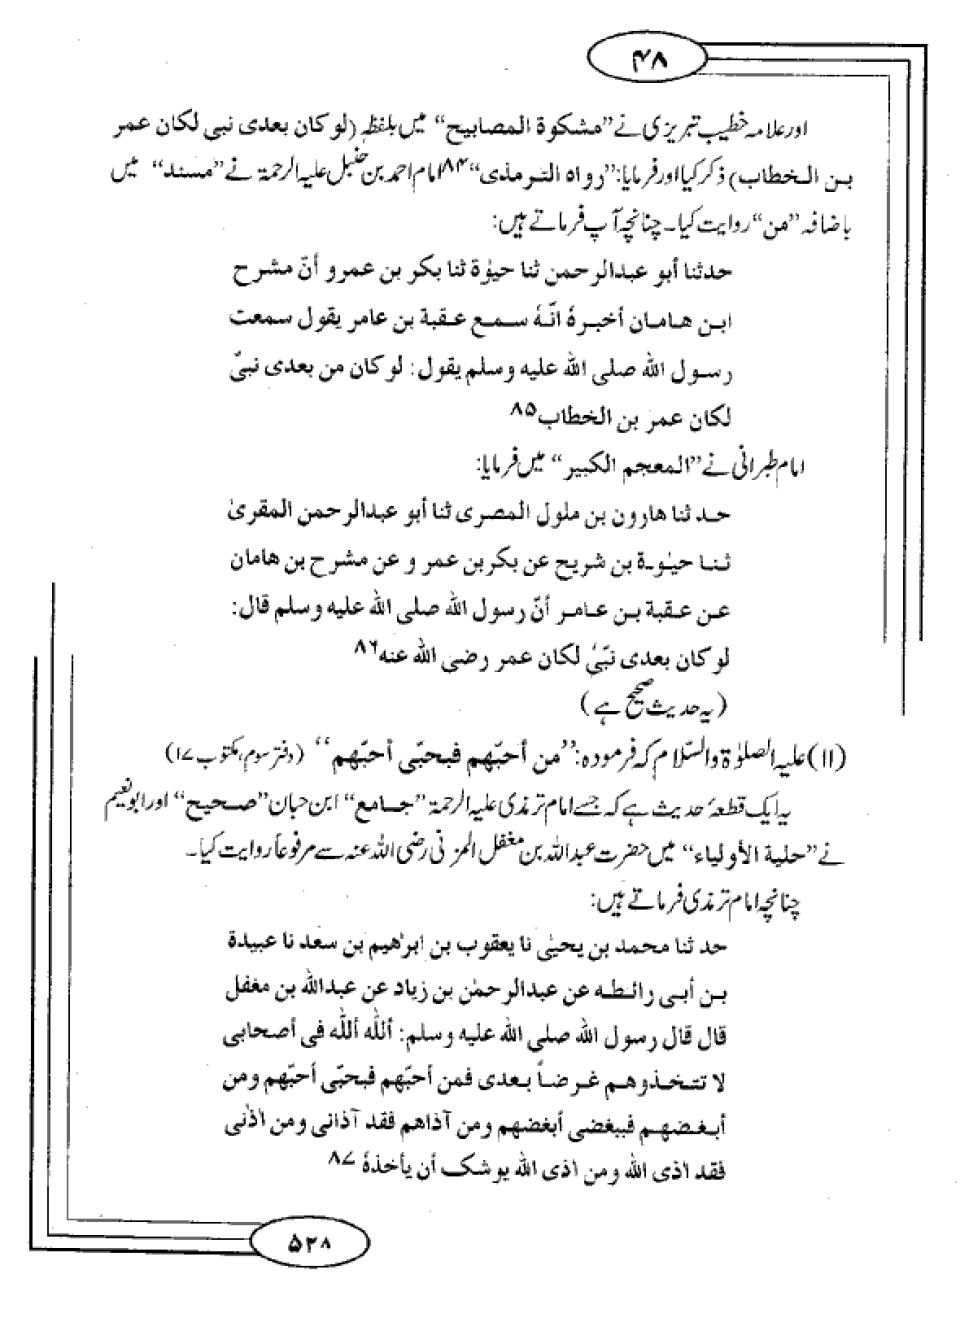 ۴۸
اور علامہ خطیب تبریزی نے ”مشکوة المصابیح“ میں بلفظہ (لو کان بعدی نبی لکان عمر
بن الخطاب) ذکر کیا اور فرمایا: ”رواہ الترمذی“ ۸۴ امام احمد بن حنبل علیہ الرحمۃ نے ”مسند“ میں
باضافہ ”من“ روایت کیا۔ چنانچہ آپ فرماتے ہیں:
حدثنا أبو عبدالرحمن ثنا حیوٰة ثنا بکر بن عمرو أنّ مشرح
ابن هامان أخبرهٗ انّهٗ سمع عقبة بن عامر یقول سمعت
رسول اللّٰه صلی اللّٰه علیه وسلم یقول: لو کان من بعدی نبیّ
لکان عمر بن الخطاب ۸۵
امام طبرانی نے ”المعجم الکبیر“ میں فرمایا:
حد ثنا هارون بن ملول المصری ثنا أبو عبدالرحمن المقریٔ
ثنا حیٰوة بن شریح عن بکر بن عمر و عن مشرح بن هامان
عن عقبة بن عامر أنّ رسول اللّٰه صلی اللّٰه علیه وسلم قال:
لو کان بعدی نبّیٌ لکان عمر رضی اللّٰه عنه ۸۶
(یہ حدیث صحیح ہے)
(۱۱) علیہ الصلوٰۃ والسّلام کہ فرمودہ: ”من أحبّهم فبحبّی أحبّهم“ (دفتر سوم، مکتوب ۱۷)
یہ ایک قطعۂ حدیث ہے کہ جسے امام ترمذی علیہ الرحمۃ ”جامع“ ابن حبان ”صحیح“ اور ابو نعیم
نے ”حلیة الأولیاء“ میں حضرت عبداللہ بن مغفل المزنی رضی اللہ عنہ سے مرفوعاً روایت کیا۔
چنانچہ امام ترمذی فرماتے ہیں:
حد ثنا محمد بن یحیٰی نا یعقوب بن ابرٰهیم بن سعد نا عبیدة
بن أبی رائطه عن عبدالرحمٰن بن زیاد عن عبداللّٰه بن مغفل
قال قال رسول اللّٰه صلی اللّٰه علیه وسلم: أللّٰه أللّٰه فی أصحابی
لا تتخذوهم غرضاً بعدی فمن أحبّهم فبحبّی أحبّهم ومن
أبغضهم فببغضی أبغضهم ومن آذاهم فقد آذانی ومن اذٰنی
فقد اذی اللّٰه ومن اذی اللّٰه یوشک أن یأخذهٗ ۸۷
۵۲۸